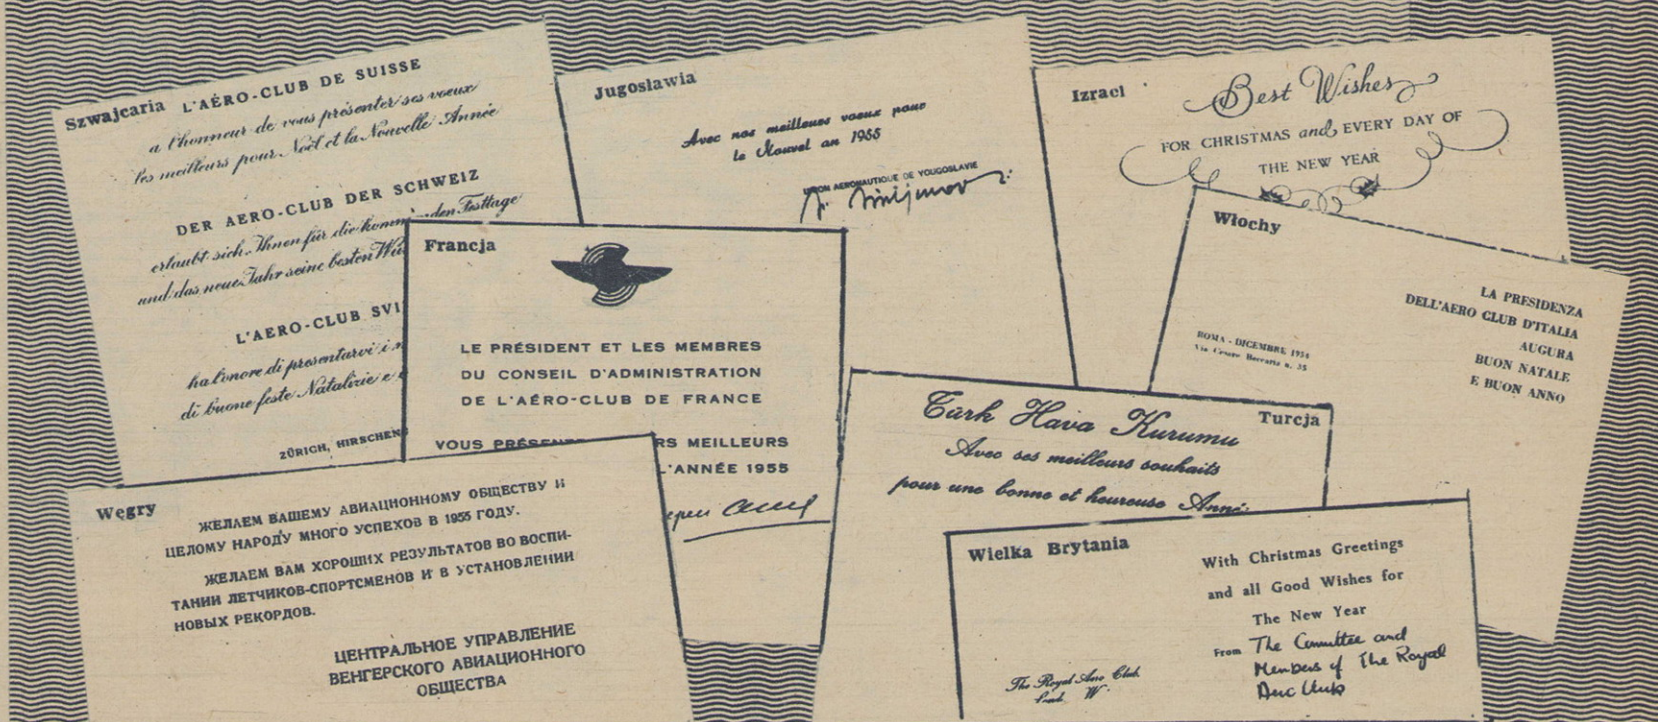 Szwajcaria
L'AÉRO-CLUB DE SUISSE
a l'honneur de vous présenter ses voeux
les meilleurs pour Noël et la Nouvelle Année
DER AERO-CLUB DER SCHWEIZ
erlaubt sich, Ihnen für die den Festtage
und das neue Jahr seine besten
L'AERO-CLUB
ha l'onore di presentarvi i
di buone feste Natalizie e
ZÜRICH,
Jugosławia
Avec nos meilleurs voeux pour
le Nouvel an 1955
UNION AERONAUTIQUE DE YOUGOSLAVIE
Izrael
Best Wishes
FOR CHRISTMAS and EVERY DAY OF
THE NEW YEAR
Francja
LE PRÉSIDENT ET LES MEMBRES
DU CONSEIL D'ADMINISTRATION
DE L'AÉRO-CLUB DE FRANCE
VOUS MEILLEURS
L'ANNÉE 1955
Włochy
LA PRESIDENZA
DELL'AERO CLUB D'ITALIA
AUGURA
BUON NATALE
E BUON ANNO
ROMA - DICEMBRE 1954
Via Cesare Beccaria n. 35
Turcja
Türk Hava Kurumu
Avec ses meilleurs souhaits
pour une bonne et heureuse
Węgry
ЖЕЛАЕМ ВАШЕМУ АВИАЦИОННОМУ ОБЩЕСТВУ И
ЦЕЛОМУ НАРОДУ МНОГО УСПЕХОВ В 1955 ГОДУ.
ЖЕЛАЕМ ВАМ ХОРОШИХ РЕЗУЛЬТАТОВ ВО ВОСПИ-
ТАНИИ ЛЕТЧИКОВ-СПОРТСМЕНОВ И В УСТАНОВЛЕНИИ
НОВЫХ РЕКОРДОВ.
ЦЕНТРАЛЬНОЕ УПРАВЛЕНИЕ
ВЕНГЕРСКОГО АВИАЦИОННОГО
ОБЩЕСТВА
Wielka Brytania
With Christmas Greetings
and all Good Wishes for
The New Year
From The Committee and
Members of The Royal
Aero Club
The Royal Aero Club